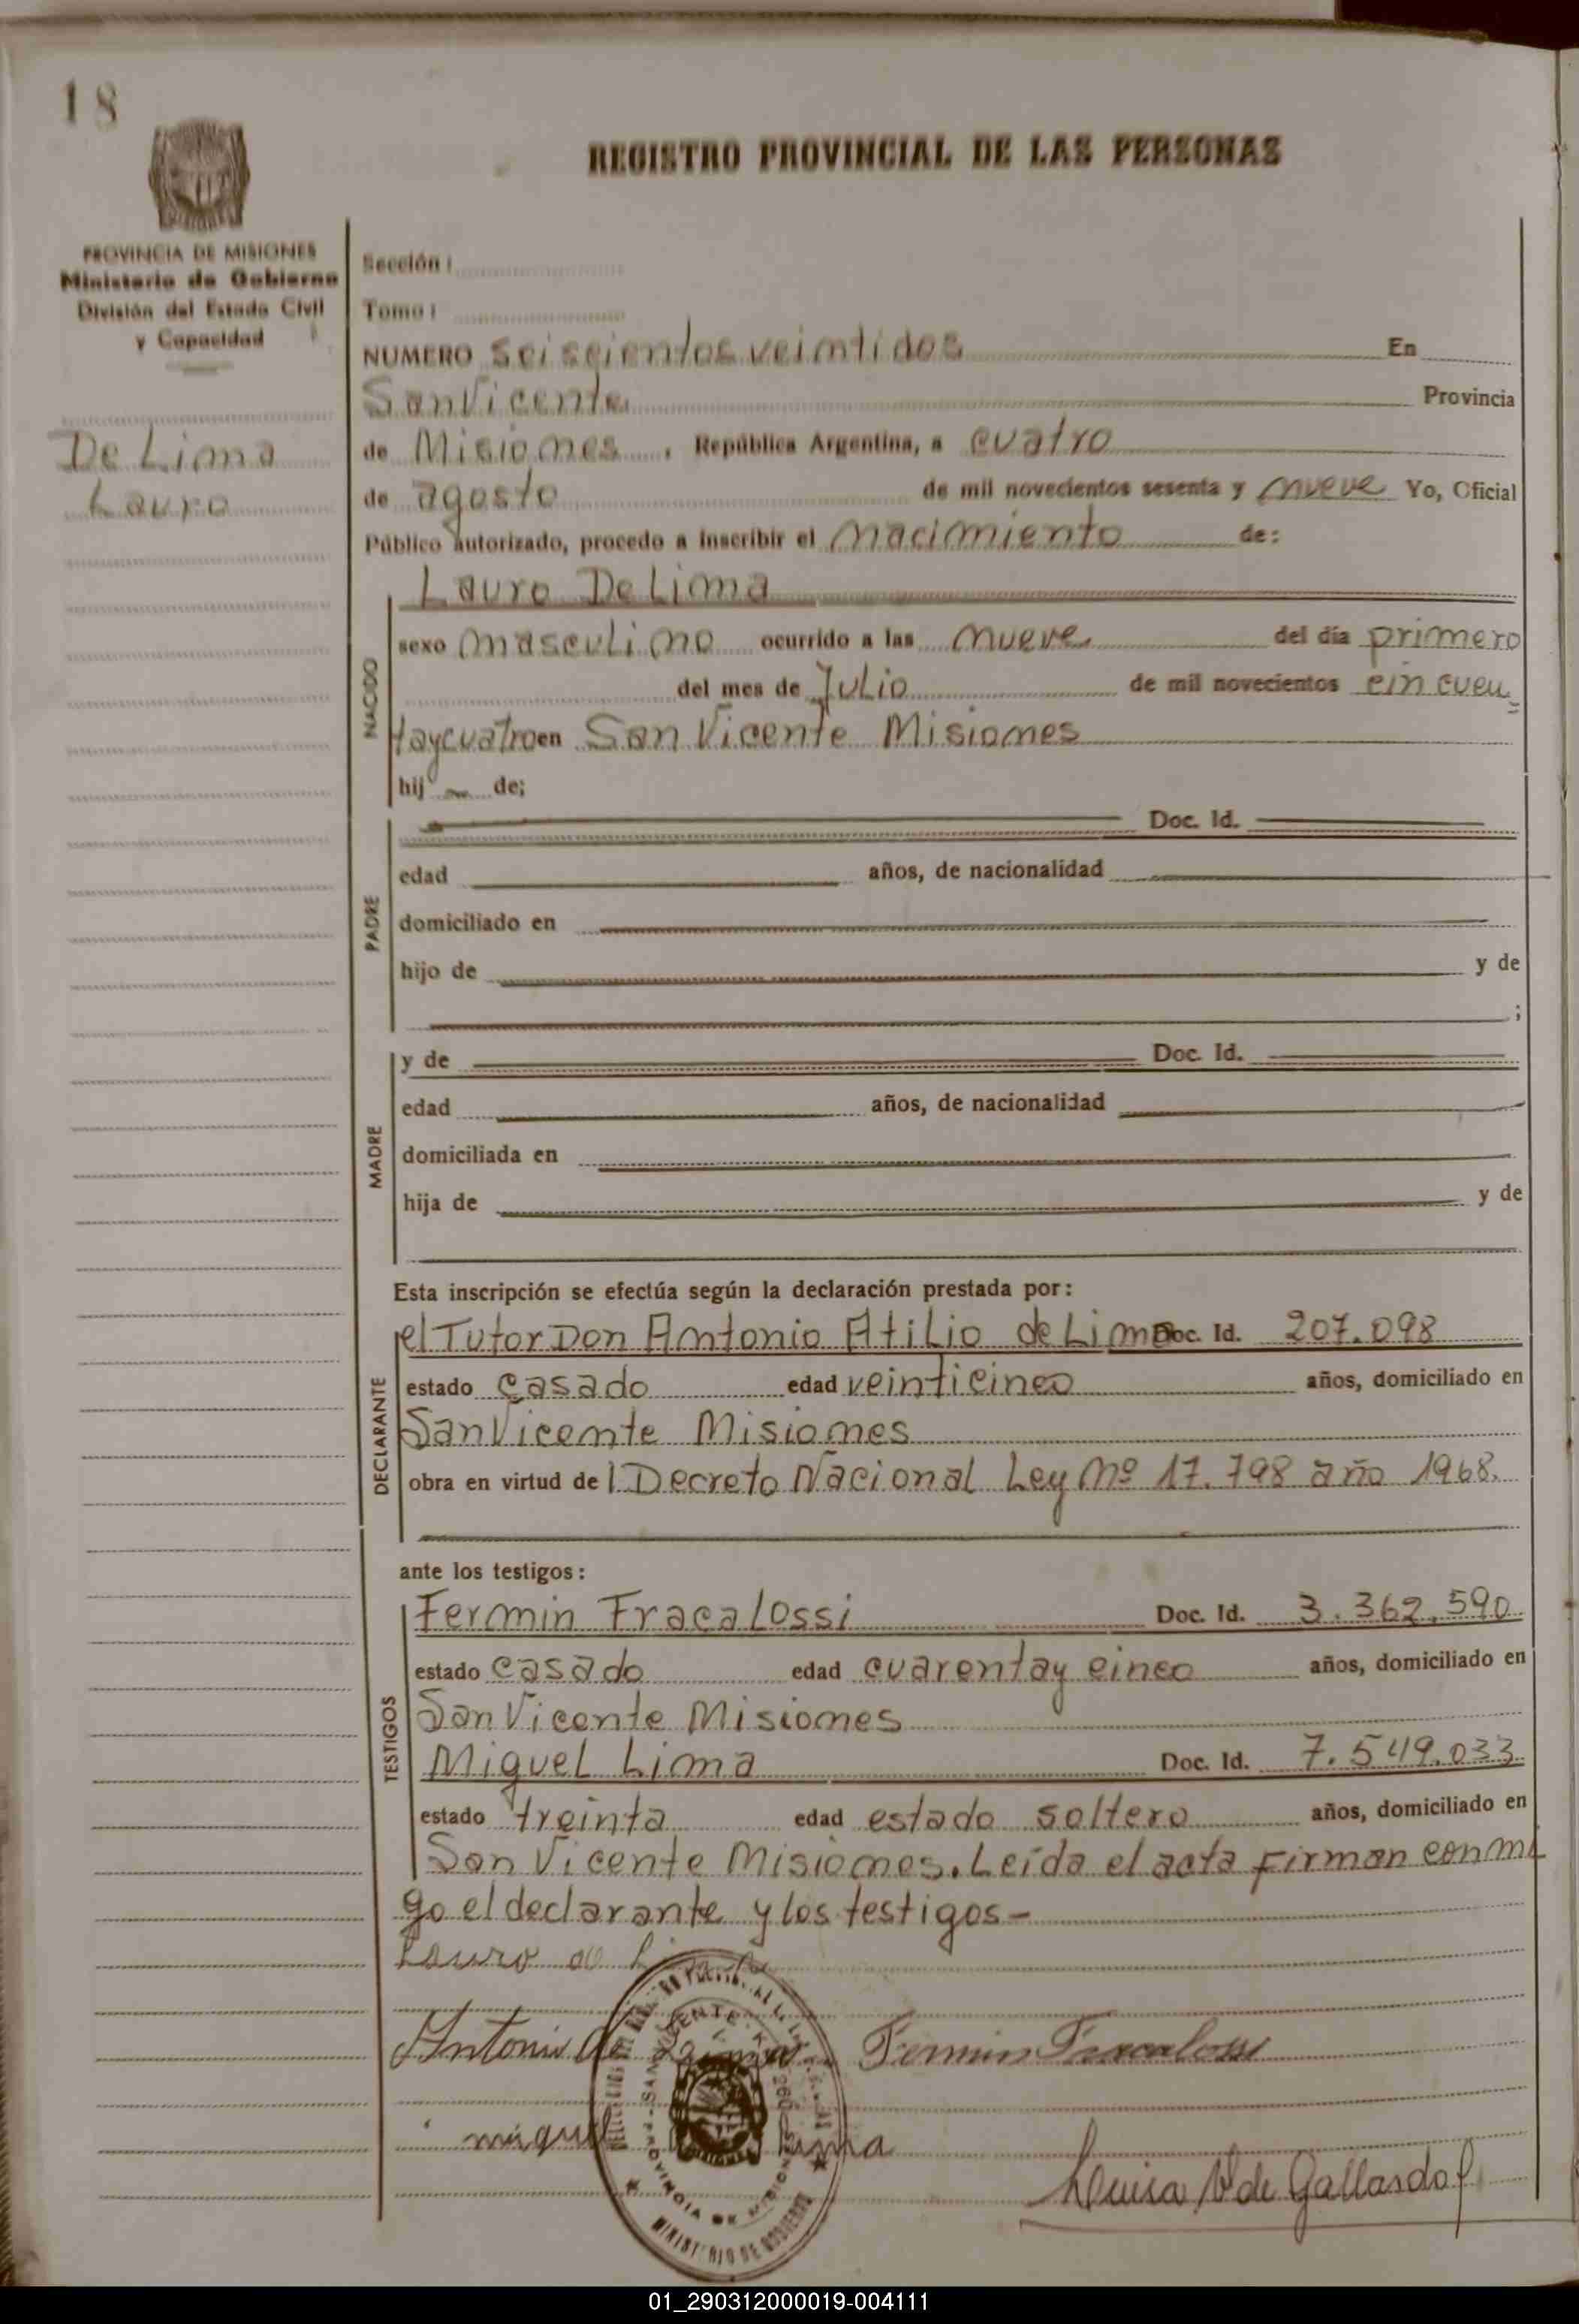 18
REGISTRO PROVINCIAL DE LAS PERSONAS
PROVINCIA DE MISIONES
Ministerio de Gobierno
División del Estado Civil
y Capacidad
De Lima
Lauro
Sección:
Tomo:
NUMERO seiscientos veintidos En
San Vicente Provincia
de Misiones, República Argentina, a cuatro
de agosto de mil novecientos sesenta y nueve Yo, Oficial
Público autorizado, procedo a inscribir el nacimiento de:
NACIDO
Lauro De Lima
sexo masculino ocurrido a las nueve del día primero
del mes de Julio de mil novecientos cincuen
taycuatro en San Vicente Misiones
hij de;
PADRE
Doc. Id.
edad años, de nacionalidad
domiciliado en
hijo de y de
;
MADRE
y de Doc. Id.
edad años, de nacionalidad
domiciliada en
hija de y de
Esta inscripción se efectúa según la declaración prestada por:
DECLARANTE
el Tutor Don Antonio Atilio de Lima Doc. Id. 207.098
estado casado edad veinticinco años, domiciliado en
San Vicente Misiones
obra en virtud de l Decreto Nacional Ley Nº 17.798 año 1968.
ante los testigos:
TESTIGOS
Fermin Fracalossi Doc. Id. 3.362.590
estado casado edad cuarentay cinco años, domiciliado en
San Vicente Misiones
Miguel Lima Doc. Id. 7.549.033
estado treinta edad estado soltero años, domiciliado en
San Vicente Misiones. Leída el acta firman conmi
go el declarante y los testigos-
Lauro de
Antonio de Lima Fermin Fracalossi
miguel Lima
Luisa V de Gallardo
SAN VICENTE
PROVINCIA DE MISIONES
MINISTERIO DE GOBIERNO
01_290312000019-004111